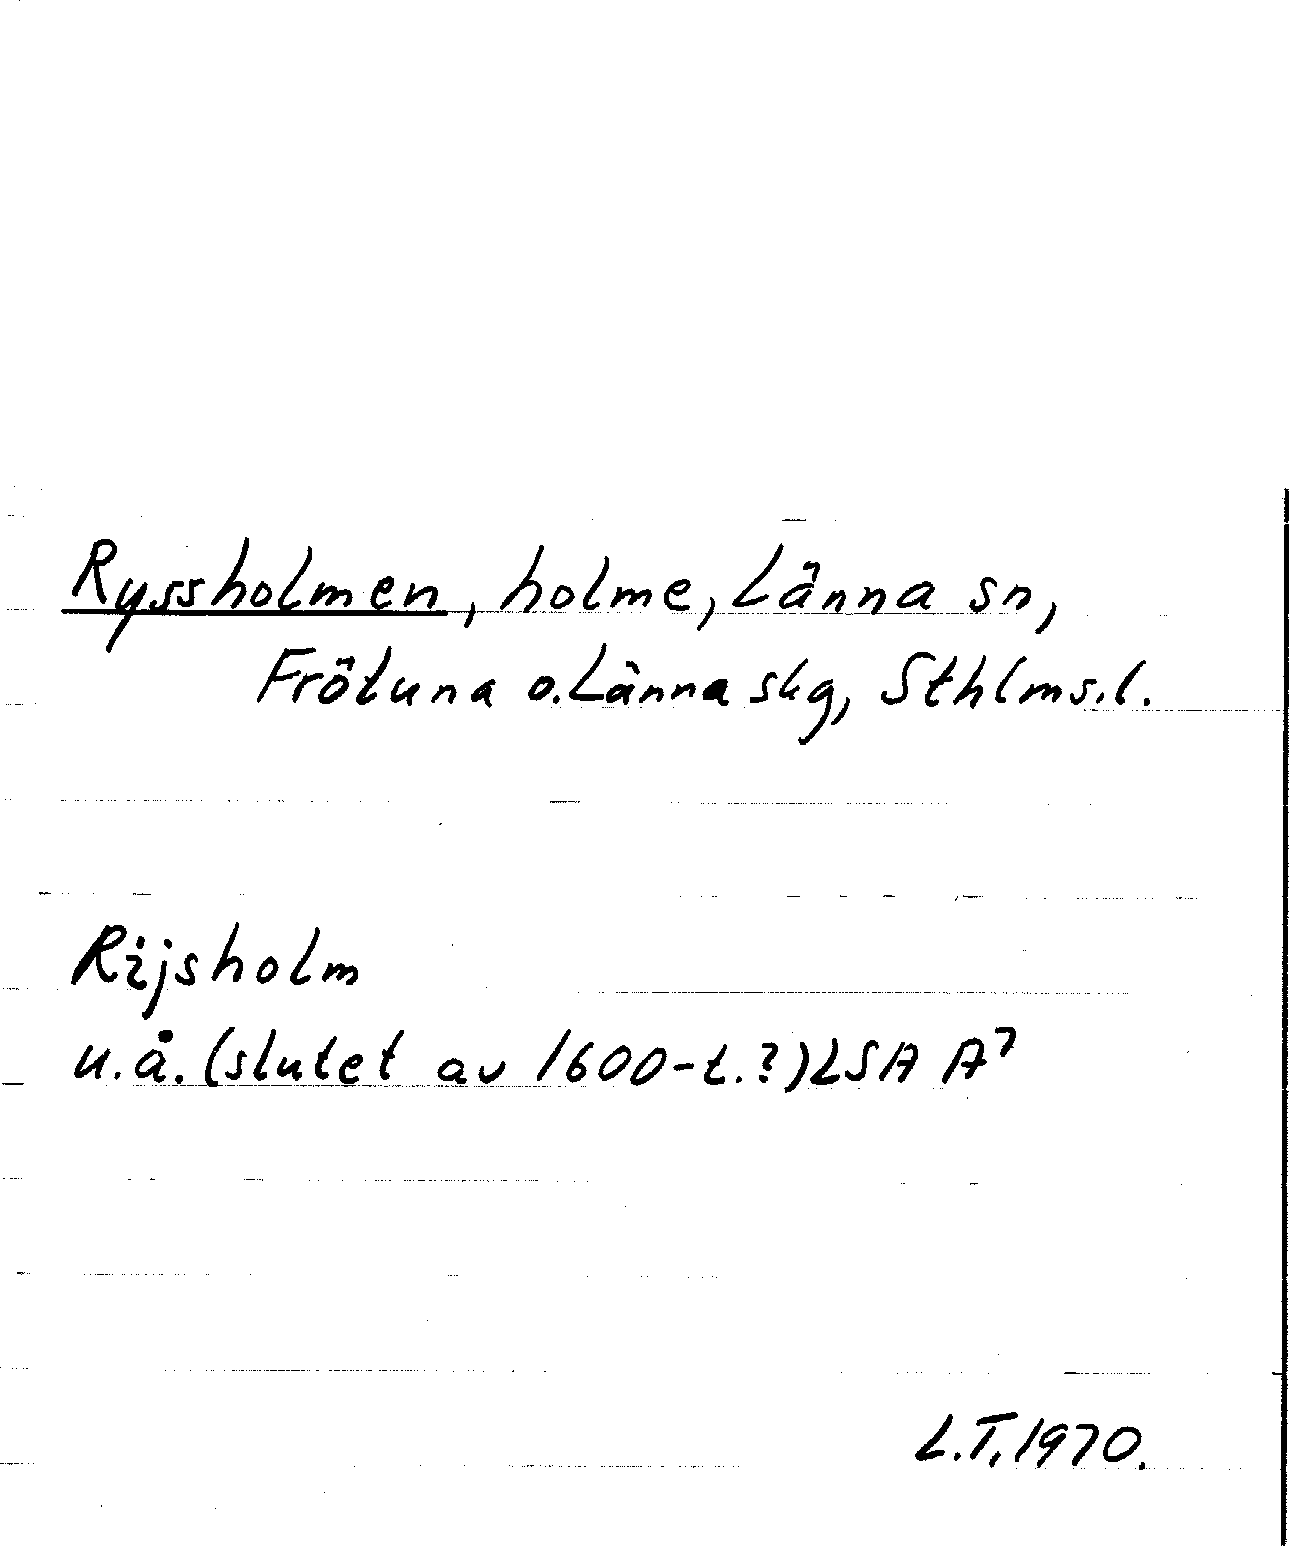 Ryssholmen, holme, Länna sn,
Frötuna o. Länna skg, Sthlms.l.
Rijsholm
u.å. (slutet av 1600-t.?) LSA A⁷
L.T. 1970.